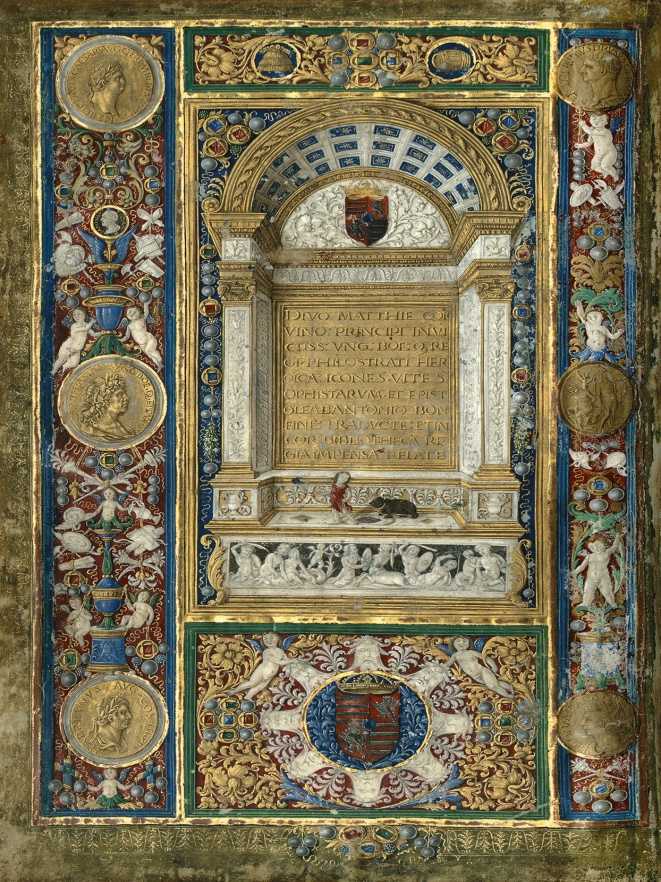 DIVO MATTHIE COR
VINO PRINCIPI INVI
CTISS VNG BOE Q RE
GI PHILOSTRATI HER
OICA ICONES VITE S
OPHISTARVM ET EPIST
OLE AB ANTONIO BON
FINE TRADVCTE ET IN
COR BIBLIOTHECA RE
GIA IMPENSA RELATE